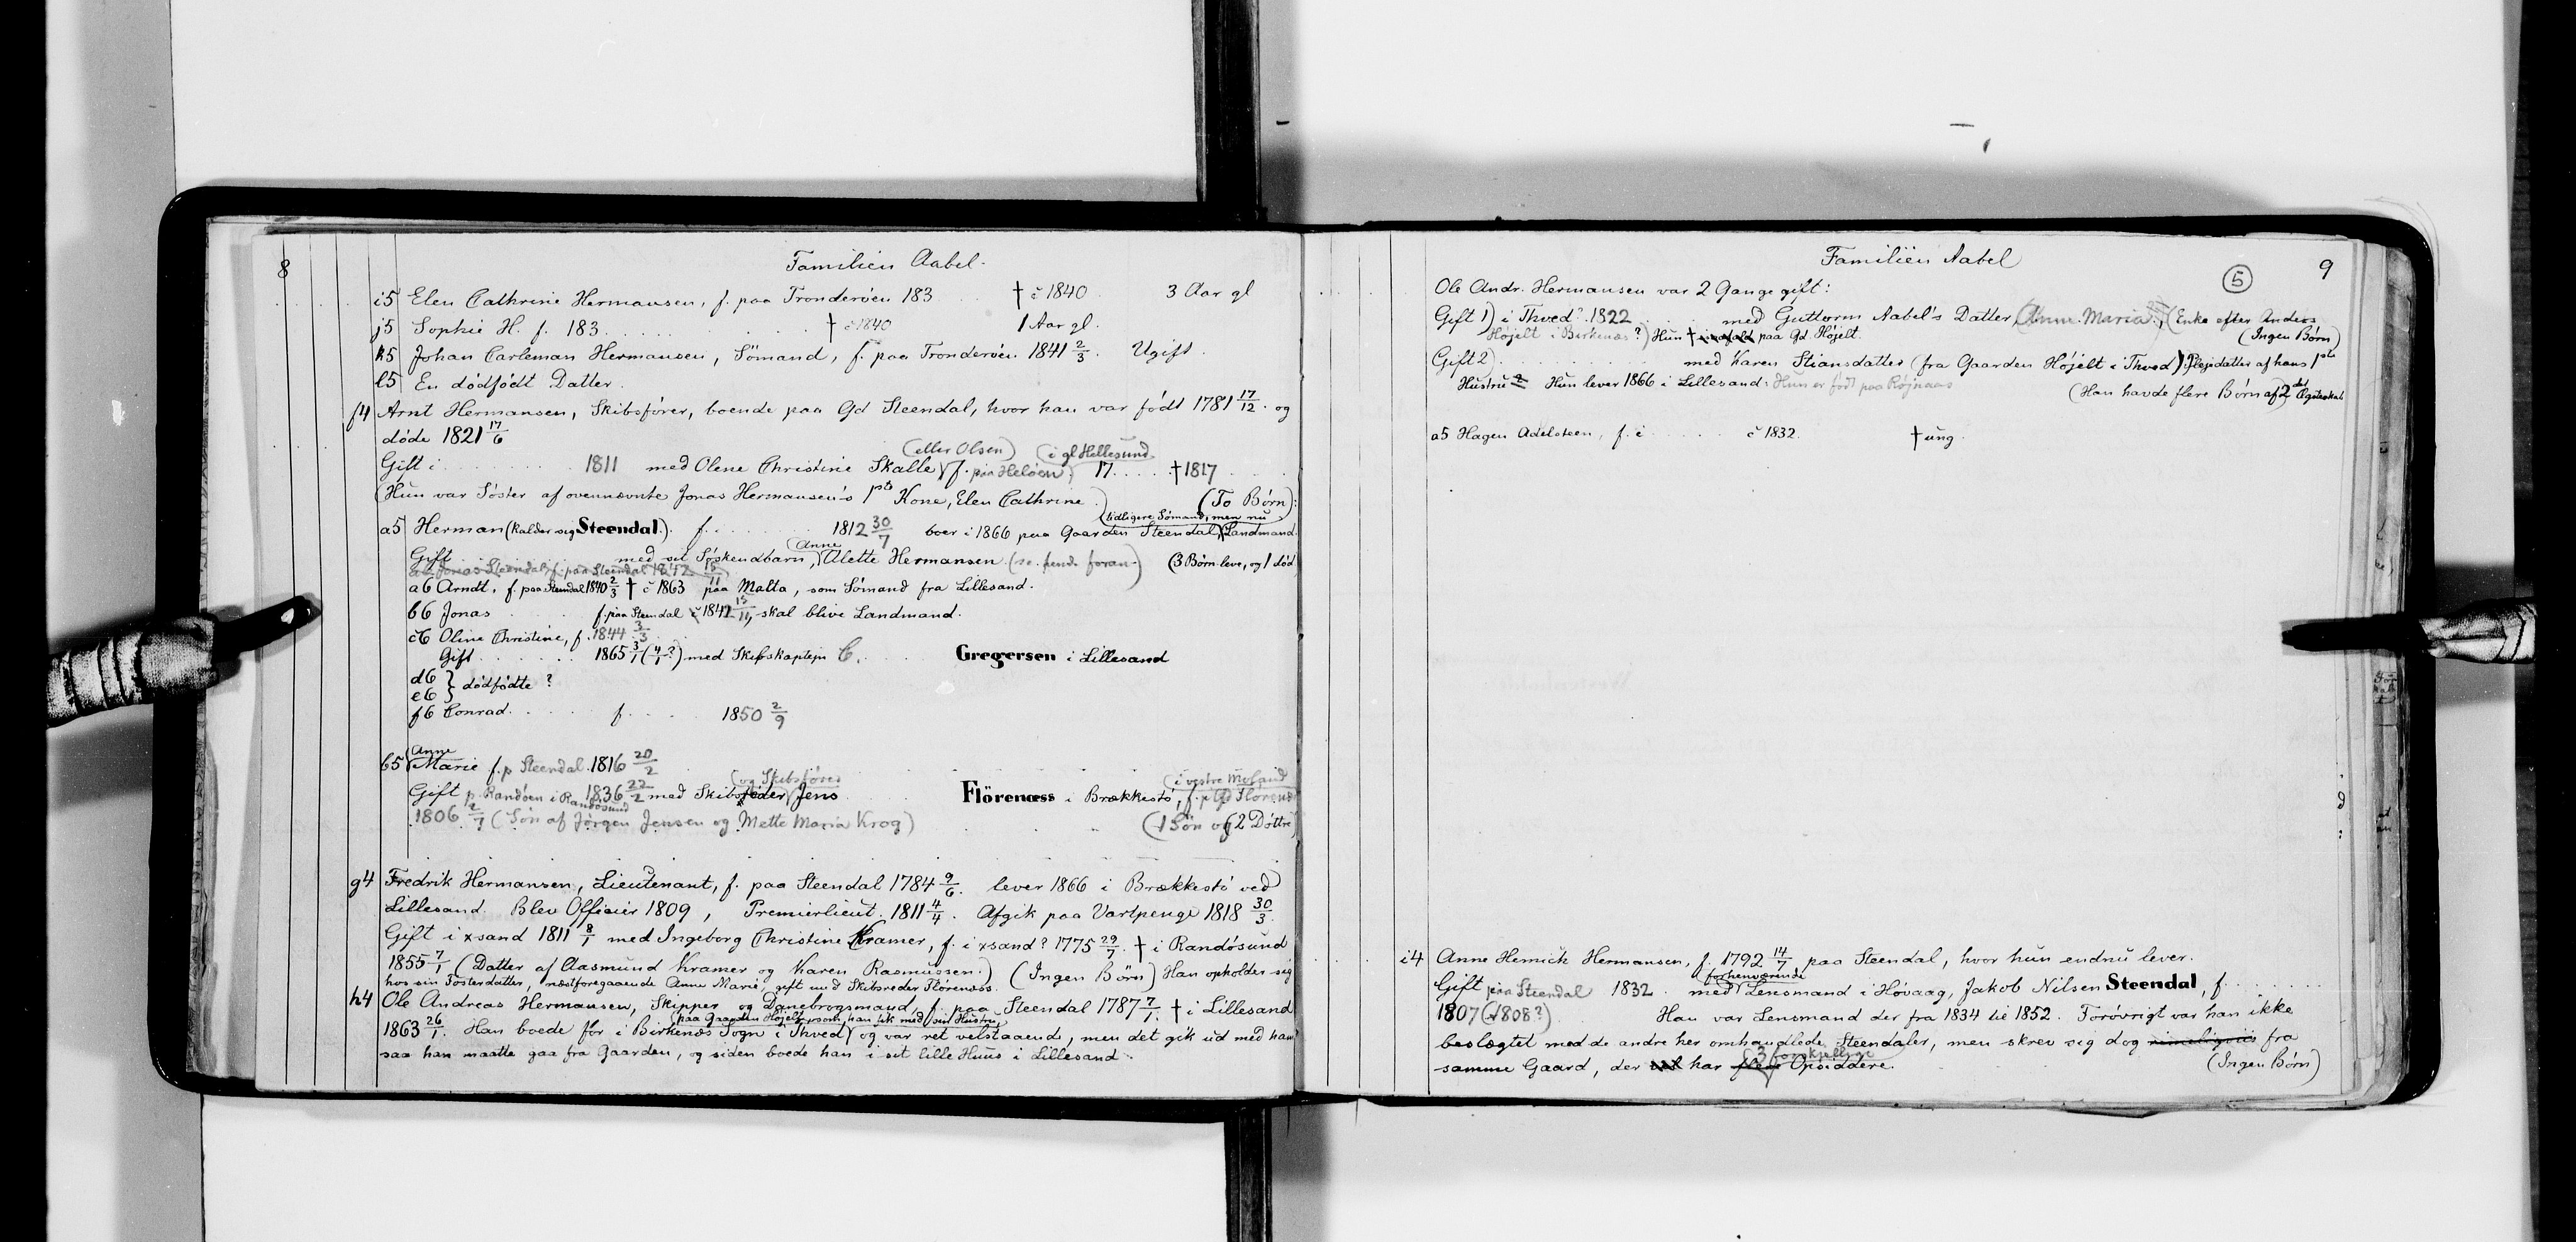 8
Familien Aabel.
i5 Elen Cathrine Hermansen, f. paa Tronderöen 183 † č 1840 3 Aar gl
j5 Sophie H. f. 183. † č 1840 1 Aar gl.
k5 Johan Carleman Hermansen, Sömand, f. paa Tronderöen 1841 2/3. Ugift.
l5 En dödfödt Datter.
f4 Arnt Hermansen, Skibsförer, boende paa Gd Steendal, hvor han var födt 1781 17/12. og
döde 1821 17/6
(eller Olsen) (i gl Hellesund
Gift i 1811 med Olene Christine Skalle f. paa Helöen) 17 † 1817
(Hun var Söster af ovennævnte Jonas Hermansen's 1ste Kone, Elen Cathrine.) (To Börn):
(tidligere Sömand, men nu
a5 Herman (kalder sig Steendal). f. 1812 30/7 boer i 1866 paa Gaarden Steendal, Landmand.
(Anne
Gift med sit Söskendbarn, Alette Hermansen (se. foran) (3 Börn leve, og 1 död
Jonas Steendal, f. paa Steendal 1842 15/11
a6 Arndt, f. paa Steendal 1840 2/3 † č 1863 paa Malta, som Sömand fra Lillesand.
b6 Jonas f. paa Steendal č 1842 15/11, skal blive Landmand.
c6 Oline Christine, f. 1844 3/3
Gift 1865 3/1 (4/1?) med Skibskaptejn C. Gregersen i Lillesand
d6
e6 } dödfödte?
f6 Conrad f. 1850 2/9
(Anne
b5 Marie f. p Steendal 1816 20/2
(og Skibsförer (i vestre Moland
Gift p. Randöen i Randösund 1836 22/2 med Skibsreder Jens Flörenæss i Brækkestö, f. p Gd Flörenæs
1806 2/7 (Sön af Jörgen Jensen og Mette Maria Krog) (1 Sön og 2 Döttre)
g4 Fredrik Hermansen, Lieutenant, f. paa Steendal 1784 9/6. lever 1866 i Brækkestö ved
Lillesand. Blev Officier 1809, Premierlieut. 1811 4/4. Afgik paa Vartpenge 1818 30/3.
Gift i xsand 1811 8/1 med Ingeborg Christine Kramer, f. i xsand? 1775 29/7. † i Randösund
1855 7/1 (Datter af Aasmund Kramer og Karen Rasmussen.) (Ingen Börn) Han opholder sig
hos sin Fosterdatter, næstforegaaende Anne Marie, gift med Skibsreder Flörenæss.
h4 Ole Andreas Hermansen, Skipper og Danebrogsmand, f. paa Steendal 1787 7/7. † i Lillesand
(paa Gaarden Höjelt, som han fik med sin Hustru,
1863 26/1. Han boede för i Birkenæs Sogn i Thved og var ret velstaaende, men det gik ud med ham
saa han maatte gaa fra Gaarden, og siden boede han i sit lille Huus i Lillesand.
Familien Aabel
5
9
Ole Andr. Hermansen var 2 Gange gift:
Gift 1) i Thved? 1822 med Guttorm Aabel's Datter, Anne Maria, (Enke efter Anders
Höjelt i Birkenæs?) Hun † paa Gd Höjelt. (Ingen Börn)
Gift 2) med Karen Stiansdatter (fra Gaarden Höjelt i Thved) Plejedatter af hans 1ste
Hustru Hun lever 1866 i Lillesand: Hun er född paa Röjnaas (Han havde flere Börn af 2det Ægteskab
a5 Hagen Adelsteen, f. i č 1832. † ung.
i4 Anne Hemick Hermansen, f. 1792 14/7 paa Steendal, hvor hun endnu lever.
forhenværende
Gift paa Steendal 1832. med Lensmand i Hövaag, Jakob Nilsen Steendal, f.
1807 (1808?) Han var Lensmand der fra 1834 til 1852. Forövrigt var han ikke
beslægtet med de andre her omhandlede Steendaler, men skrev sig dog rimeligviis fra
(3 forskjellige
samme Gaard, der har flere Opsiddere. (Ingen Börn)